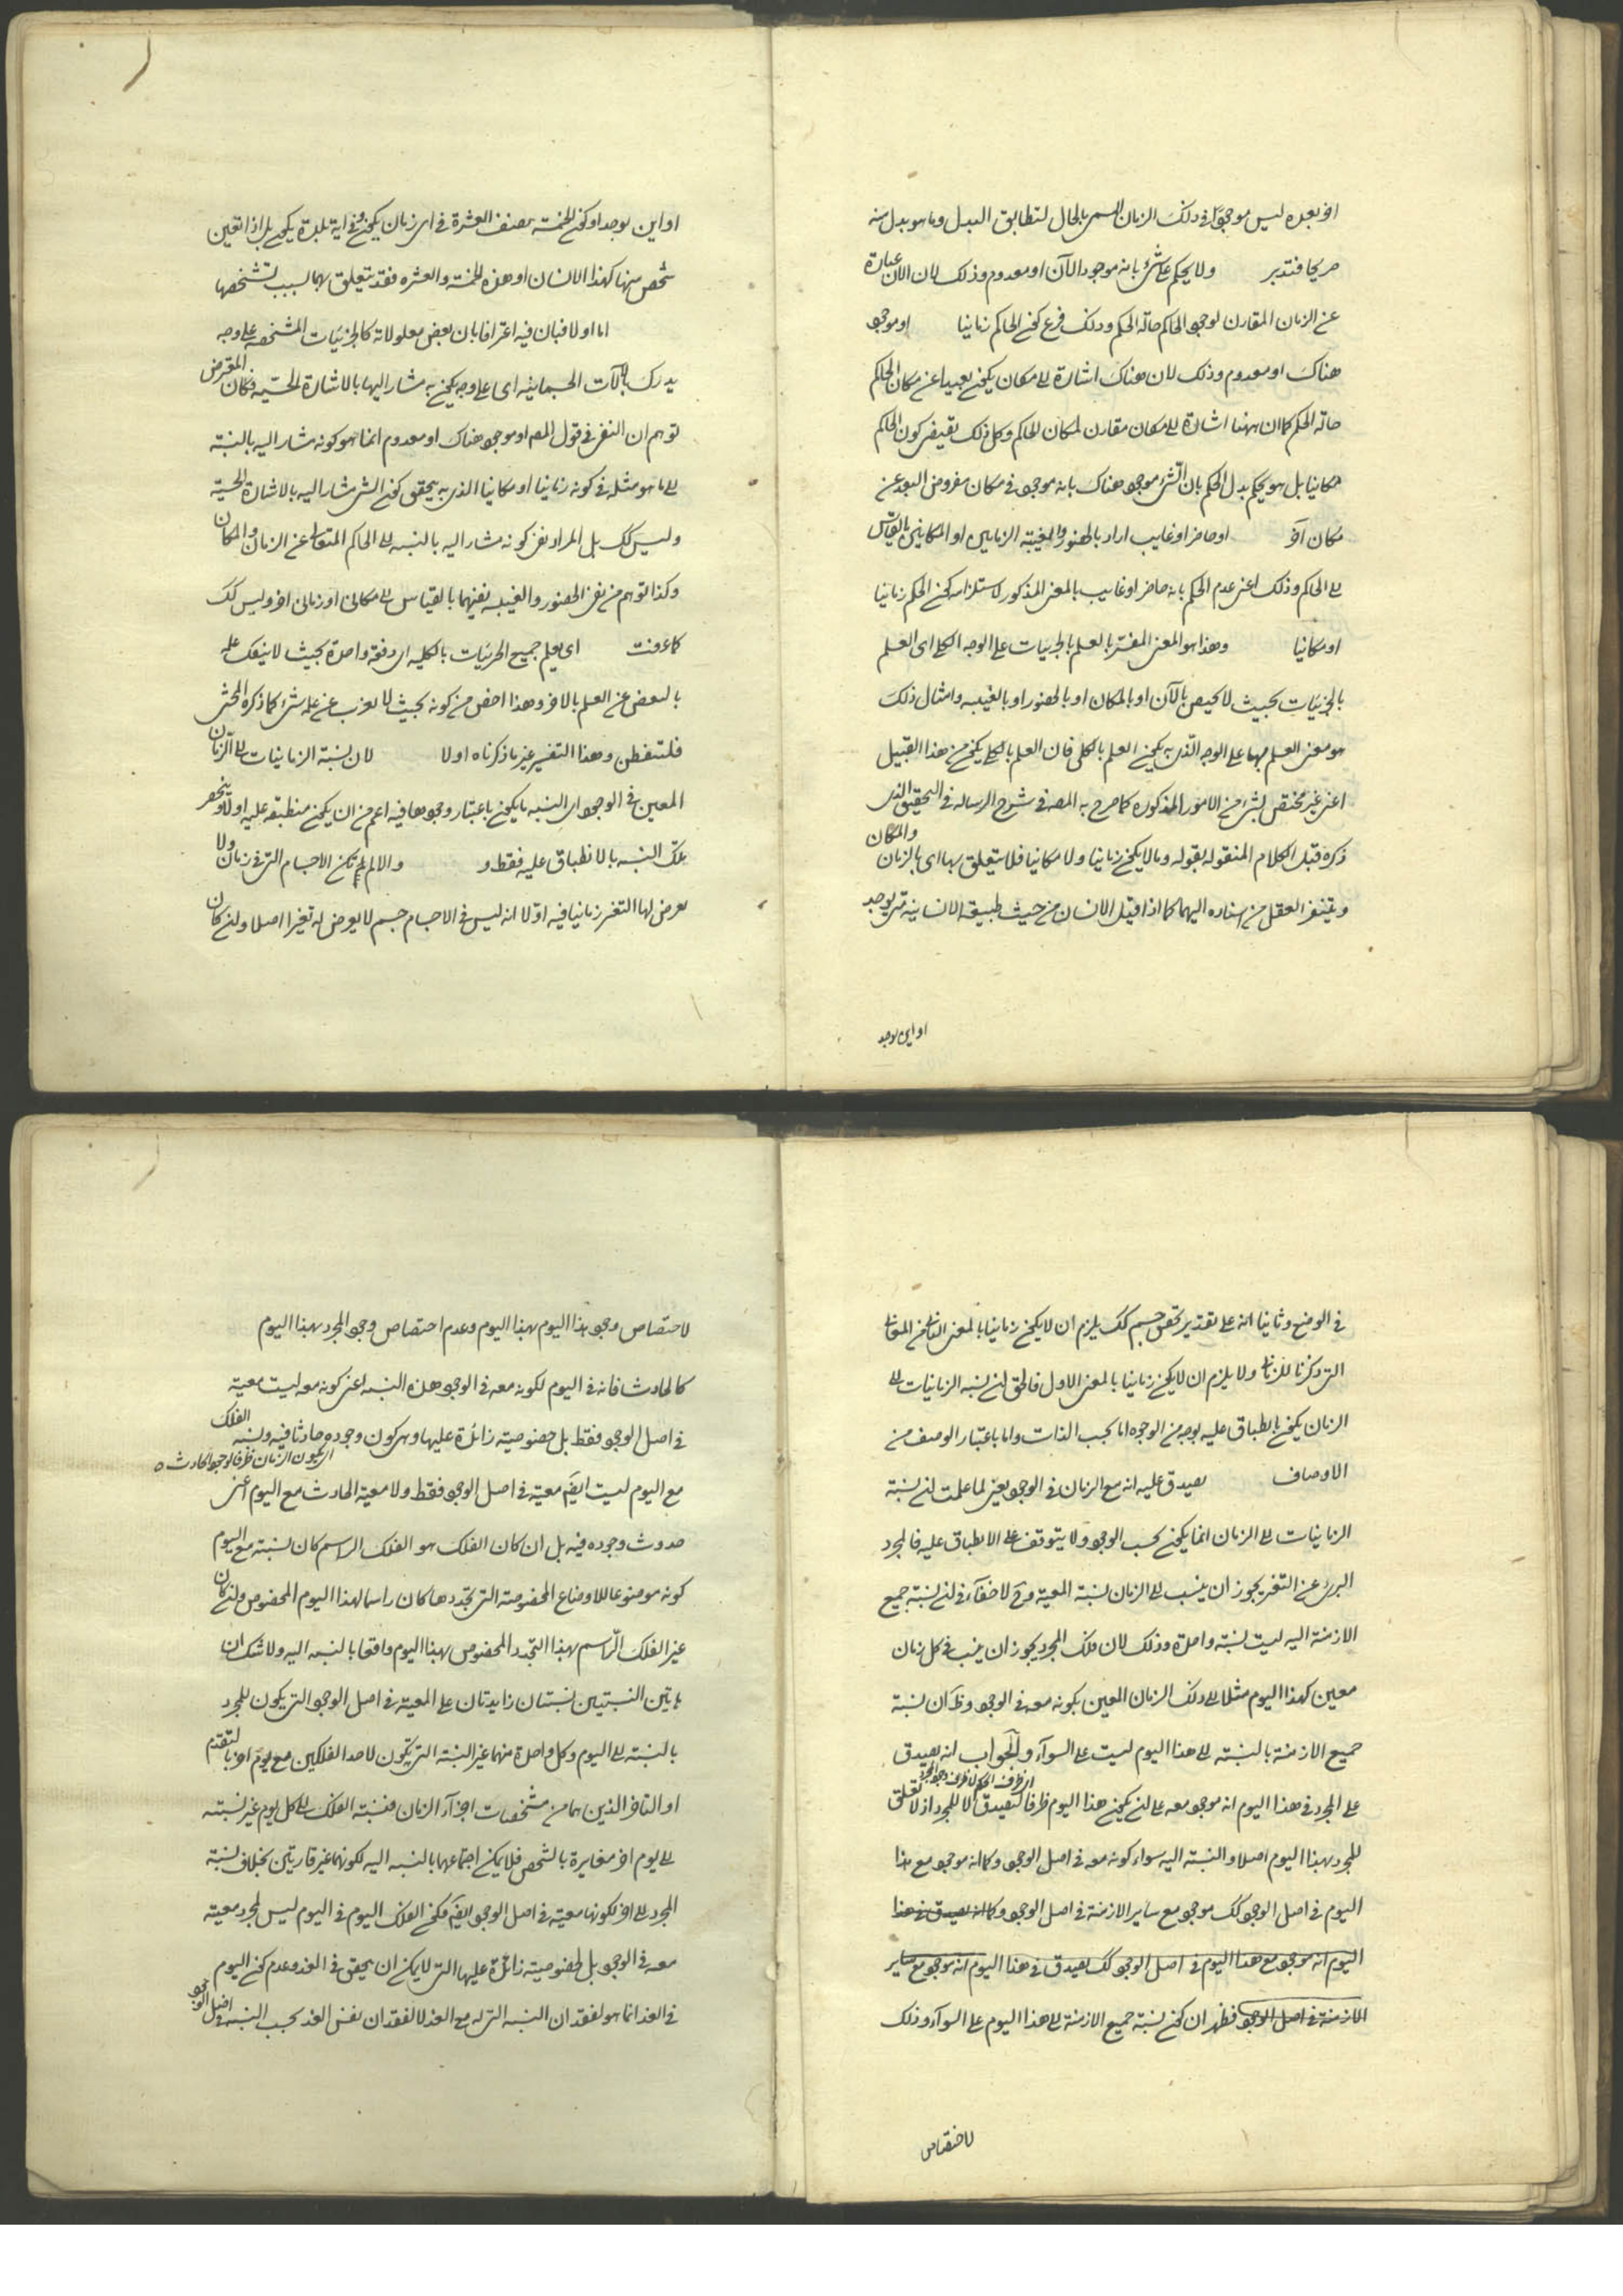 او بعده ليس موجودا في ذلك الزمان المسمى بالحال لتطابق البدل وما هو بدل منه
صريحا فتدبر ولا يحكم على شئ بانه موجود الآن او معدوم وذلك لان الآن عبارة
عن الزمان المقارن لوجود الحاكم حالة الحكم وذلك فرع كون الحاكم زمانيا او موجود
هناك او معدوم وذلك لان هناك اشارة الى مكان يكون بعيدا عن مكان الحاكم
حالة الحكم كما ان ههنا اشارة الى مكان مقارن لمكان الحاكم وكل ذلك يقتضي كون الحاكم
مكانيا بل هو يحكم بدل الحكم بان الشئ موجود هناك بانه موجود في مكان مفروض البعد عن
مكان آخر او حاضر او غايب اراد بالحضور والغيبة الزمانيين او المكانيين بالقياس
الى الحاكم وذلك اعنى عدم الحكم بانه حاضر او غايب بالمعنى المذكور لاستلزامه كون الحاكم زمانيا
او مكانيا وهذا هو المعنى المفسر بالعلم بالجزئيات على الوجه الكلي اى العلم
بالجزئيات بحيث لا يختص بالآن او بالمكان او بالحضور او بالغيبه وامثال ذلك
هو معنى العلم بها على الوجه الذى به يكون العلم بالكلى فان العلم بالكلي يكون من هذا القبيل
اعنى غير مختص بشئ من الامور المذكوره كما صرح به المصه في شرح الرساله في التحقيق الذى
ذكره قبل الكلام المنقوله بقوله وما لا يكون زمانيا ولا مكانيا فلا يتعلق بها اى بالزمان والمكان
ويتنفر العقل من اسناده اليهما كما اذا قيل الانسان من حيث طبيعته الانسانية متى يوجد
او اين يوجد
او اين يوجد او كون الخمسة نصف العشرة في اى زمان يكون وفي اية بلدة يكون بل اذا تعين
شخص منها كهذا الانسان او هذه الخمسة والعشره فقد يتعلق بهما بسبب تشخصها
اما اولا فبان فيه اعترافا بان بعض معلولاته كالجزئيات المتشخصه على وجه
يدرك بالآلات الجسمانيه اى على وجه يكون به مشار اليها بالاشارة الحسيه فكان المعترض
توهم ان النفى في قول المصه او موجود هناك او معدوم انما هو كونه مشار اليه بالنسبة
الى ما هو مثله في كونه زمانيا او مكانيا الذى به يتحقق كون الشئ مشار اليه بالاشارة الحسية
وليس كك بل المراد نفى كونه مشار اليه بالنسبه الى الحاكم المتعالى عن الزمان والمكان
وكذا توهم من نفى الحضور والغيبه نفيهما بالقياس الى مكانى او زمانى آخر وليس كك
كما عرفت اى يعلم جميع الجزئيات بالكليه اى دفعة واحدة بحيث لا ينفك علمه
بالبعض عن العلم بالآخر وهذا اخص من كونه بحيث لا يعزب عن علمه شئ كما ذكره المحشى
فلتتفطن وهذا التفسير غير ما ذكرناه اولا لان نسبة الزمانيات الى الزمان
المعين في الوجود اى النسبه ما يكون باعتبار وجودها فيه اعم من ان يكون منطبقه عليه اولا وينحصر
تلك النسبه بالانطباق عليه فقط و والا لم تكن الاجسام التي في زمان ولا
يعرض لها التغير زمانيا فيه اوّلا انه ليس في الاجسام جسم لا يعرض له تغير اصلا ولو كان
في الوضع وثانيا انه على تقدير تحقق جسم كك يلزم ان لا يكون زمانيا بالمعنى الثانى من المعانى
التي ذكرنا للزمانى ولا يلزم ان لا يكون زمانيا بالمعنى الاول فالحق ان نسبه الزمانيات الى
الزمان يكون بانطباق عليه بوجه من الوجوه اما بحسب الذات واما باعتبار الوصف من
الاوصاف يصدق عليه انه مع الزمان في الوجود يعنى لما علمت ان نسبة
الزمانيات الى الزمان انما يكون بحسب الوجود ولا يتوقف على الانطباق عليه فالمجرد
البرئ عن التغير يجوز ان ينسب الى الزمان نسبة المعية وح لا خفاء في ان نسبة جميع
الازمنة اليه ليست نسبة واحدة وذلك لان ذلك المجرد يجوز ان ينسب في كل زمان
معين كهذا اليوم مثلا الى ذلك الزمان المعين بكونه معه في الوجود وظ ان نسبة
جميع الازمنة بالنسبة الى هذا اليوم ليست على السوآء والجواب انه يصدق
على المجرد في هذا اليوم انه موجود معه على ان يكون هذا اليوم ظرفا لتصديق لا للمجرد اذ لا تعلق
للمجرد بهذا اليوم اصلا والنسبة اليه سواء كونه معه في اصل الوجود وكما انه موجود مع هذا
اليوم في اصل الوجود كك موجود مع ساير الازمنة في اصل الوجود وكما انه يصدق في هذا
اليوم انه موجود مع هذا اليوم في اصل الوجود كك يصدق في هذا اليوم انه موجود مع ساير
الازمنة في اصل الوجود فظهر ان كون نسبة جميع الازمنة الى هذا اليوم على السوآء وذلك
لاختصاص
لاختصاص وجود هذا اليوم بهذا اليوم وعدم اختصاص وجود المجرد بهذا اليوم
كالحادث فانه في اليوم لكونه معه في الوجود هذه النسبه اعنى كونه معه ليست معية
في اصل الوجود فقط بل خصوصيته زائدة عليها وهى كون وجوده حادثا فيه ونسبه الفلك
اى يكون الزمان ظرفا لوجود الحادث
مع اليوم ليست ايضا معية في اصل الوجود فقط ولا معية الحادث مع اليوم اعنى
حدوث وجوده فيه بل ان كان الفلك هو الفلك الراسم كان نسبته مع اليوم
كونه موضوعا للاوضاع المخصوصة التي تجددها كان راسما لهذا اليوم المخصوص وان كان
غير الفلك الرّاسم بهذا التجدد المخصوص بهذا اليوم واقعا بالنسبه اليه ولا شك ان
هاتين النسبتين نسبتان زايدتان على المعية في اصل الوجود التي يكون للمجرد
بالنسبة الى اليوم وكل واحدة منهما غير النسبة التي تكون لاحد الفلكين مع يوم آخر بالتقدم
او التاخر الذين هما من مشخصات اجزآء الزمان فنسبة الفلك الى كل يوم غير نسبته
الى يوم آخر مغايرة بالشخص فلا يمكن اجتماعها بالنسبه اليه لكونهما غير قاريتين بخلاف نسبة
المجرد الى آخر لكونها معية في اصل الوجود ايضا فكون الفلك اليوم في اليوم ليس لمجرد معية
معه في الوجود بل لخصوصية زائدة عليها التي لا يمكن ان يتحقق في الغد وعدم كون اليوم
في الغد انما هو لفقدان النسبه التي له مع الغد لا لفقدان نفس الغد بحسب النسبه في اصل الوجود